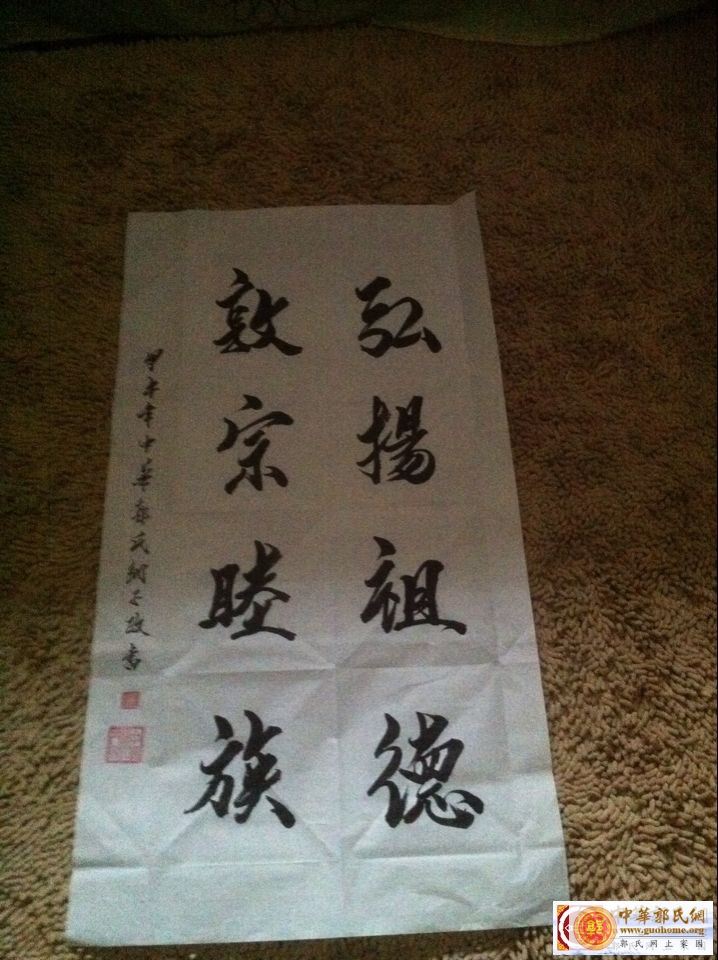 弘揚祖德
敦宗睦族
甲午年中華郭氏網之敬書
中華郭氏網
www.guohome.org
郭氏网上家园